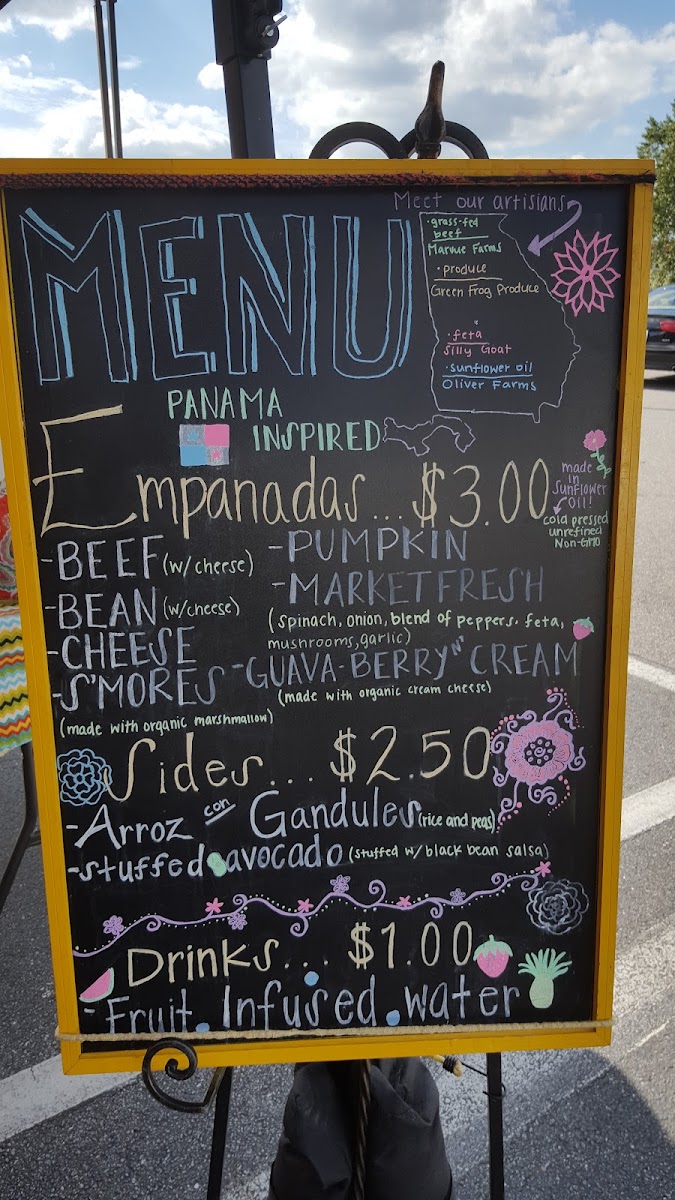 MENU
Meet our artisians
·grass-fed
beef
Marvue Farms
·produce
Green Frog Produce
·feta
Silly Goat
·sunflower oil
Oliver Farms
PANAMA
INSPIRED
Empanadas...$3.00
made
in
Sunflower
oil!
cold pressed
unrefined
Non-GMO
-BEEF (w/cheese)
-BEAN (w/cheese)
-CHEESE
-S'MORES
(made with organic marshmallow)
-PUMPKIN
-MARKET FRESH
(spinach, onion, blend of peppers. feta,
mushrooms, garlic)
-GUAVA-BERRY N' CREAM
(made with organic cream cheese)
Sides...$2.50
-Arroz con Gandules (rice and peas)
-stuffed avocado (stuffed w/ black bean salsa)
Drinks...$1.00
-Fruit Infused water